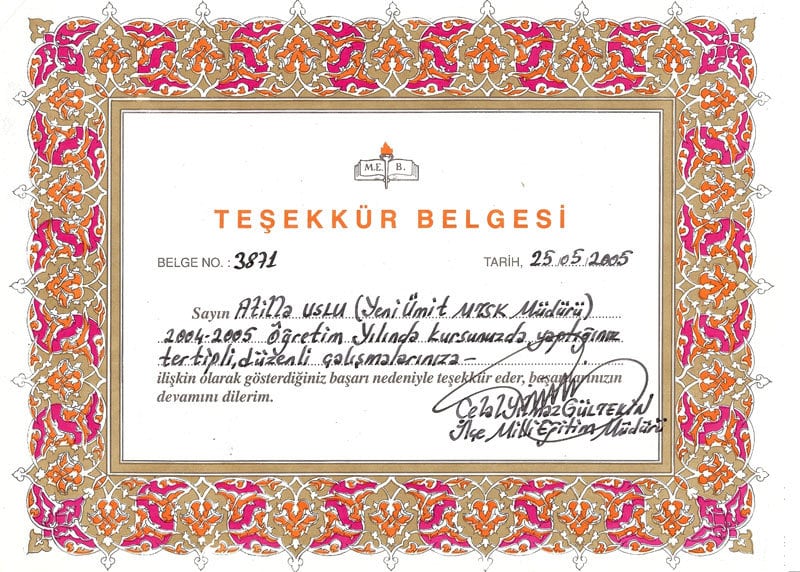 M.E. B.
TEŞEKKÜR BELGESİ
BELGE NO. : 3871 TARİH, 25.05.2005
Sayın Atilla USLU (Yeni Ümit MTSK Müdürü)
2004-2005 Öğretim Yılında kursunuzda yaptığınız
tertipli, düzenli çalışmalarınıza-
ilişkin olarak gösterdiğiniz başarı nedeniyle teşekkür eder, başarılarınızın
devamını dilerim.
Celal Yılmaz GÜLTEKİN
İlçe Milli Eğitim Müdürü